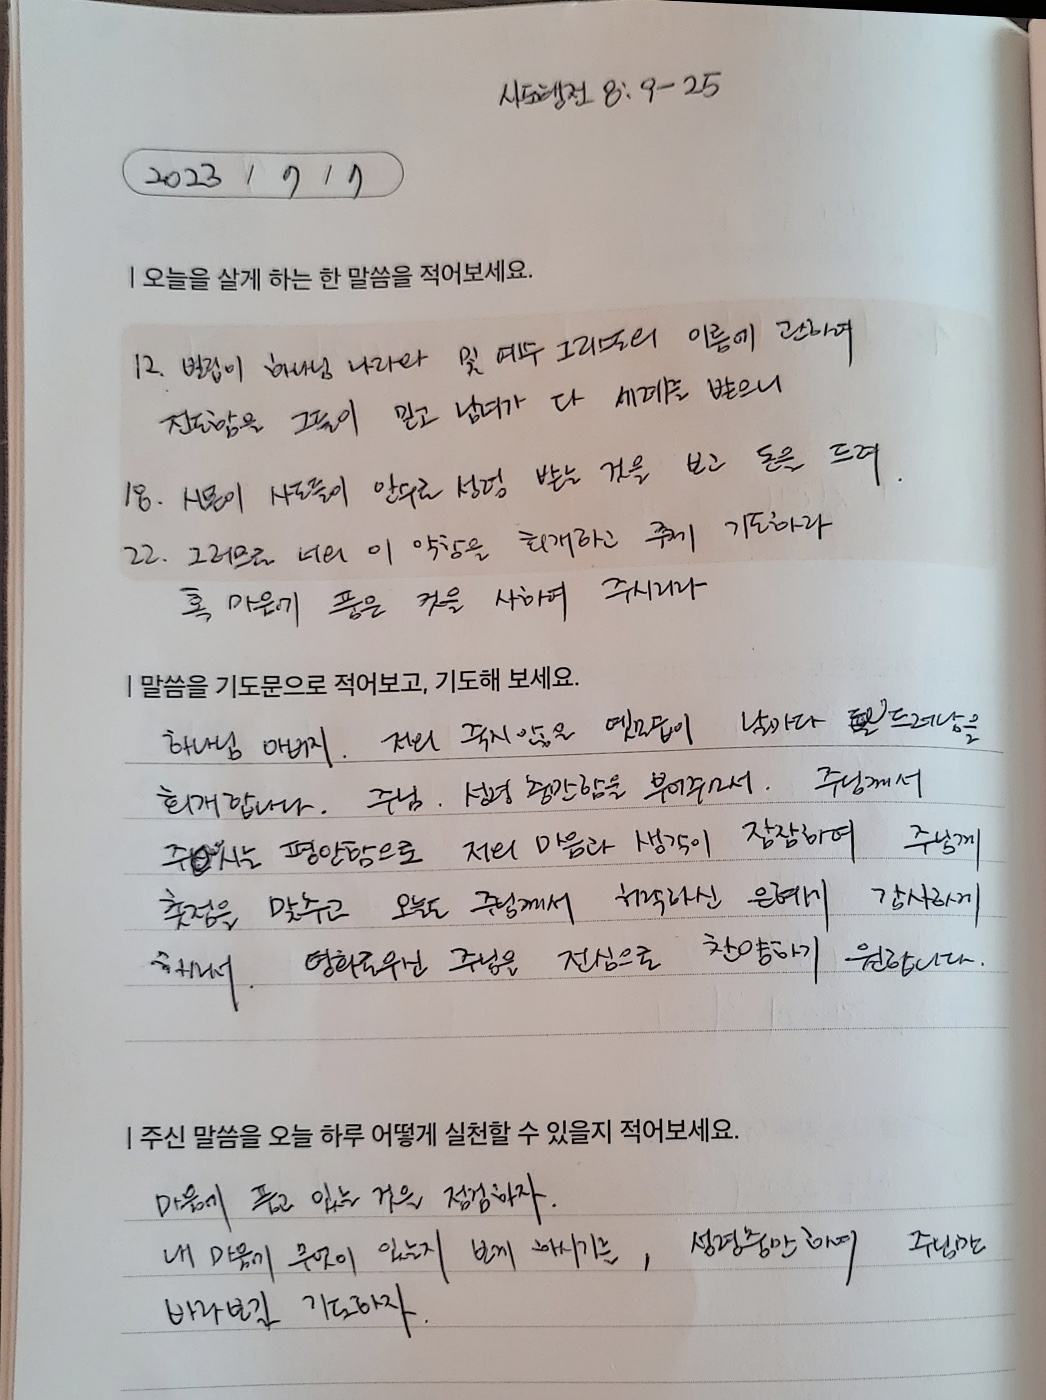 사도행전 8:9-25
2023 / 7 / 7
| 오늘을 살게 하는 한 말씀을 적어보세요.
12. 빌립이 하나님 나라와 및 예수 그리스도의 이름에 관하여
전도함을 그들이 믿고 남녀가 다 세례를 받으니
18. 시몬이 사도들이 안수로 성령 받는 것을 보고 돈을 드려.
22. 그러므로 너의 이 악함을 회개하고 주께 기도하라
혹 마음에 품은 것을 사하여 주시리라
| 말씀을 기도문으로 적어보고, 기도해 보세요.
하나님 아버지. 저의 죽지않은 옛모습이 날마다 드러남을
회개합니다. 주님. 성령 충만함을 부어주소서. 주님께서
주시는 평안함으로 저의 마음과 생각이 잠잠하여 주님께
촛점을 맞추고 오늘도 주님께서 허락하신 은혜에 감사하게
하소서. 영화로우신 주님을 전심으로 찬양하기 원합니다.
| 주신 말씀을 오늘 하루 어떻게 실천할 수 있을지 적어보세요.
마음에 품고 있는 것을 점검하자.
내 마음에 무엇이 있는지 보게 하시기를, 성령충만하여 주님만
바라보길 기도하자.